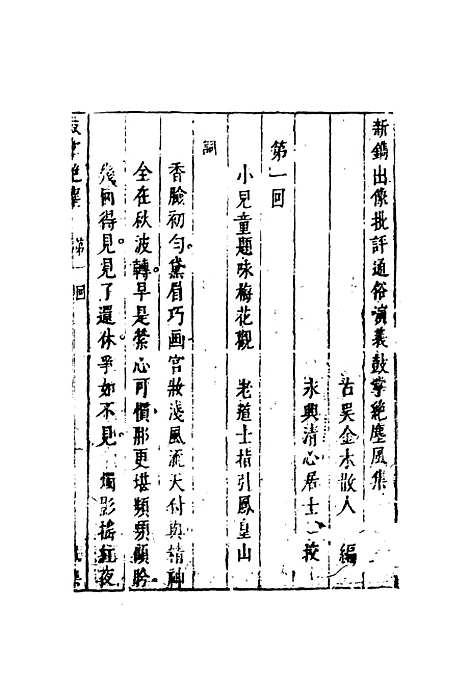 新鐫出像批評通俗演義鼓掌絕塵風集
古吳金木散人　編
永興清心居士　校
第一回
小兒童題咏梅花觀　老道士指引鳳皇山
詞
香臉初勻黛眉巧画宫妝淺風流天付與精神
全在秋波轉早是縈心可慣那更堪頻頻顧盼
幾囬得見見了還休爭如不見　燭影搖紅夜
鼓掌絕塵　第一回